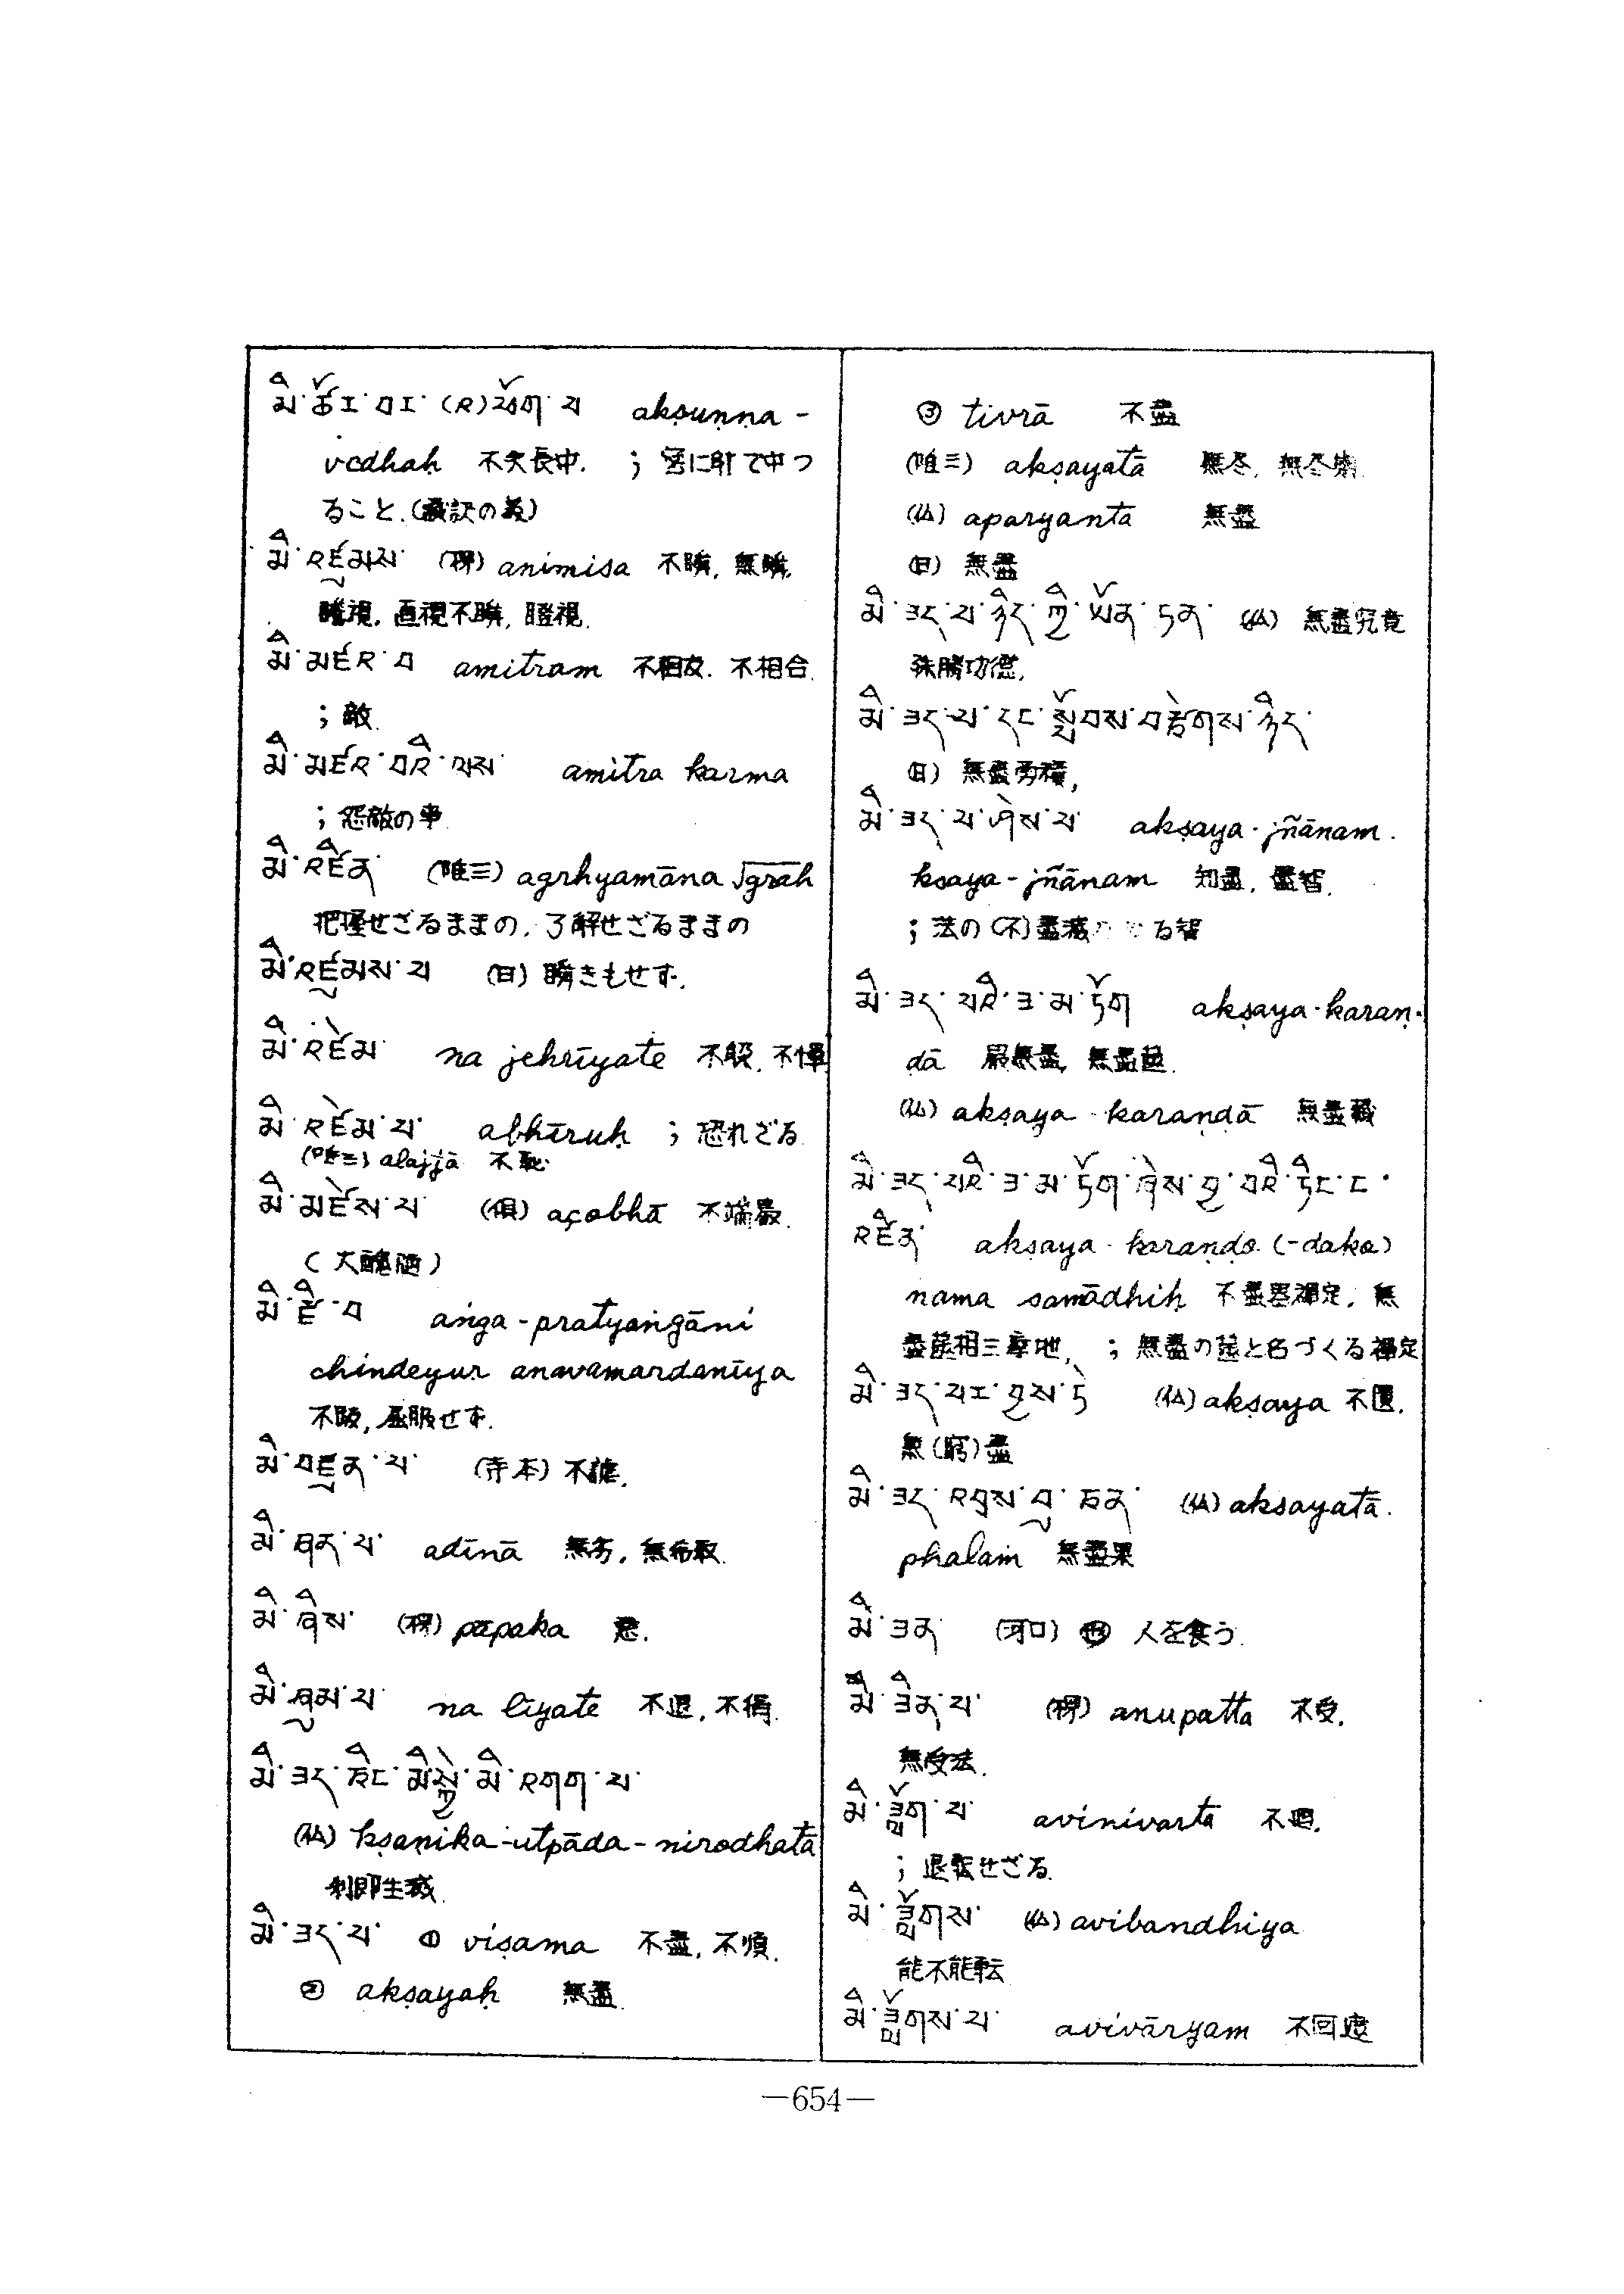 མི་ཚོར་བར་(འ)ཕོག་པ akṣuṇṇa-
vedhaḥ 不失長中. ; 害に射て中つ
ること.(蔵訳の義)
མི་འཛུམས་ (梵) animisa 不瞬, 無瞬,
視, 直視不瞬, 瞪視.
མི་མཛའ་བ amitram 不相友. 不相合.
; 敵.
མི་མཛའ་བའི་ལས་ amitra karma
; 怨敵の事
མི་འཛིན་ (唯三) agrhyamāna √grah
把握せざるままの. 了解せざるままの
མི་འཛུམས་པ (日) 瞬きもせず.
མི་འཛེམ་ na jehrīyate 不
མི་འཛེམ་པ་ abhīruḥ ; 恐れざる
(唯三) alajjā 不恥
མི་མཛེས་པ་ (倶) açobhā 不端嚴.
(大醜陋)
མི་ཛི་བ aṅga-pratyaṅgāni
chindeyur anavamardanīya
不, 屈服せず.
མི་བཛུན་པ་ (寺本) 不
མི་ཞན་པ་ adīnā 無劣, 無希取.
མི་ཞིས་ (梵) pāpaka 悪.
མི་ཞུམ་པ་ na līyate 不退, 不
མི་ཟད་ཅིང་མི་སྐྱེ་མི་འགག་པ་
(仏) kṣaṇika-utpāda-nirodhatā
刹那生滅.
མི་ཟད་པ་ ① viṣama 不盡, 不順.
② akṣayaḥ 無盡.
③ tivrā 不盡
(唯三) akṣayatā 無冬, 無冬
(仏) aparyantā 無盡
(日) 無盡
མི་ཟད་པ་ཉིད་ཀྱི་ཡོན་ཏན་ (仏) 無盡究竟
殊勝功徳.
མི་ཟད་པ་དང་སྤོབས་བརྩེགས་ཉིད་
(日) 無盡勇積,
མི་ཟད་པ་ཤེས་པ་ akṣaya-jñānam.
ksaya-jñānam 知盡, 盡智.
; 法の(不)盡滅 る智
མི་ཟད་པའི་ཟ་མ་ཏོག akṣaya-karaṇ-
ḍā 無盡, 無盡
(仏) akṣaya-karaṇḍā 無盡藏
མི་ཟད་པའི་ཟ་མ་ཏོག་ཞེས་བྱ་བའི་ཏིང་ང་
འཛིན་ akṣaya-karaṇḍo (-daka)
nama samādhiḥ 不盡器禪定, 無
盡篋相三摩地, ; 無盡の篋と名づくる禪定
མི་ཟད་པར་བྱས་ཏེ (仏) akṣaya 不匱,
無(窮)盡
མི་ཟད་འབྲས་བུ་ཅན་ (仏) aksayatā.
phalaṁ 無盡果
མི་ཟན་ (河口) 人を食う.
མི་ཟིན་པ་ (梵) anupatta 不受,
無受法.
མི་ཟློག་པ་ avinivarta 不退.
; 退転せざる
མི་ཟློགས་ (仏) avibandhiya
能不能転
མི་ཟློགས་པ་ avivāryam 不回
—654—